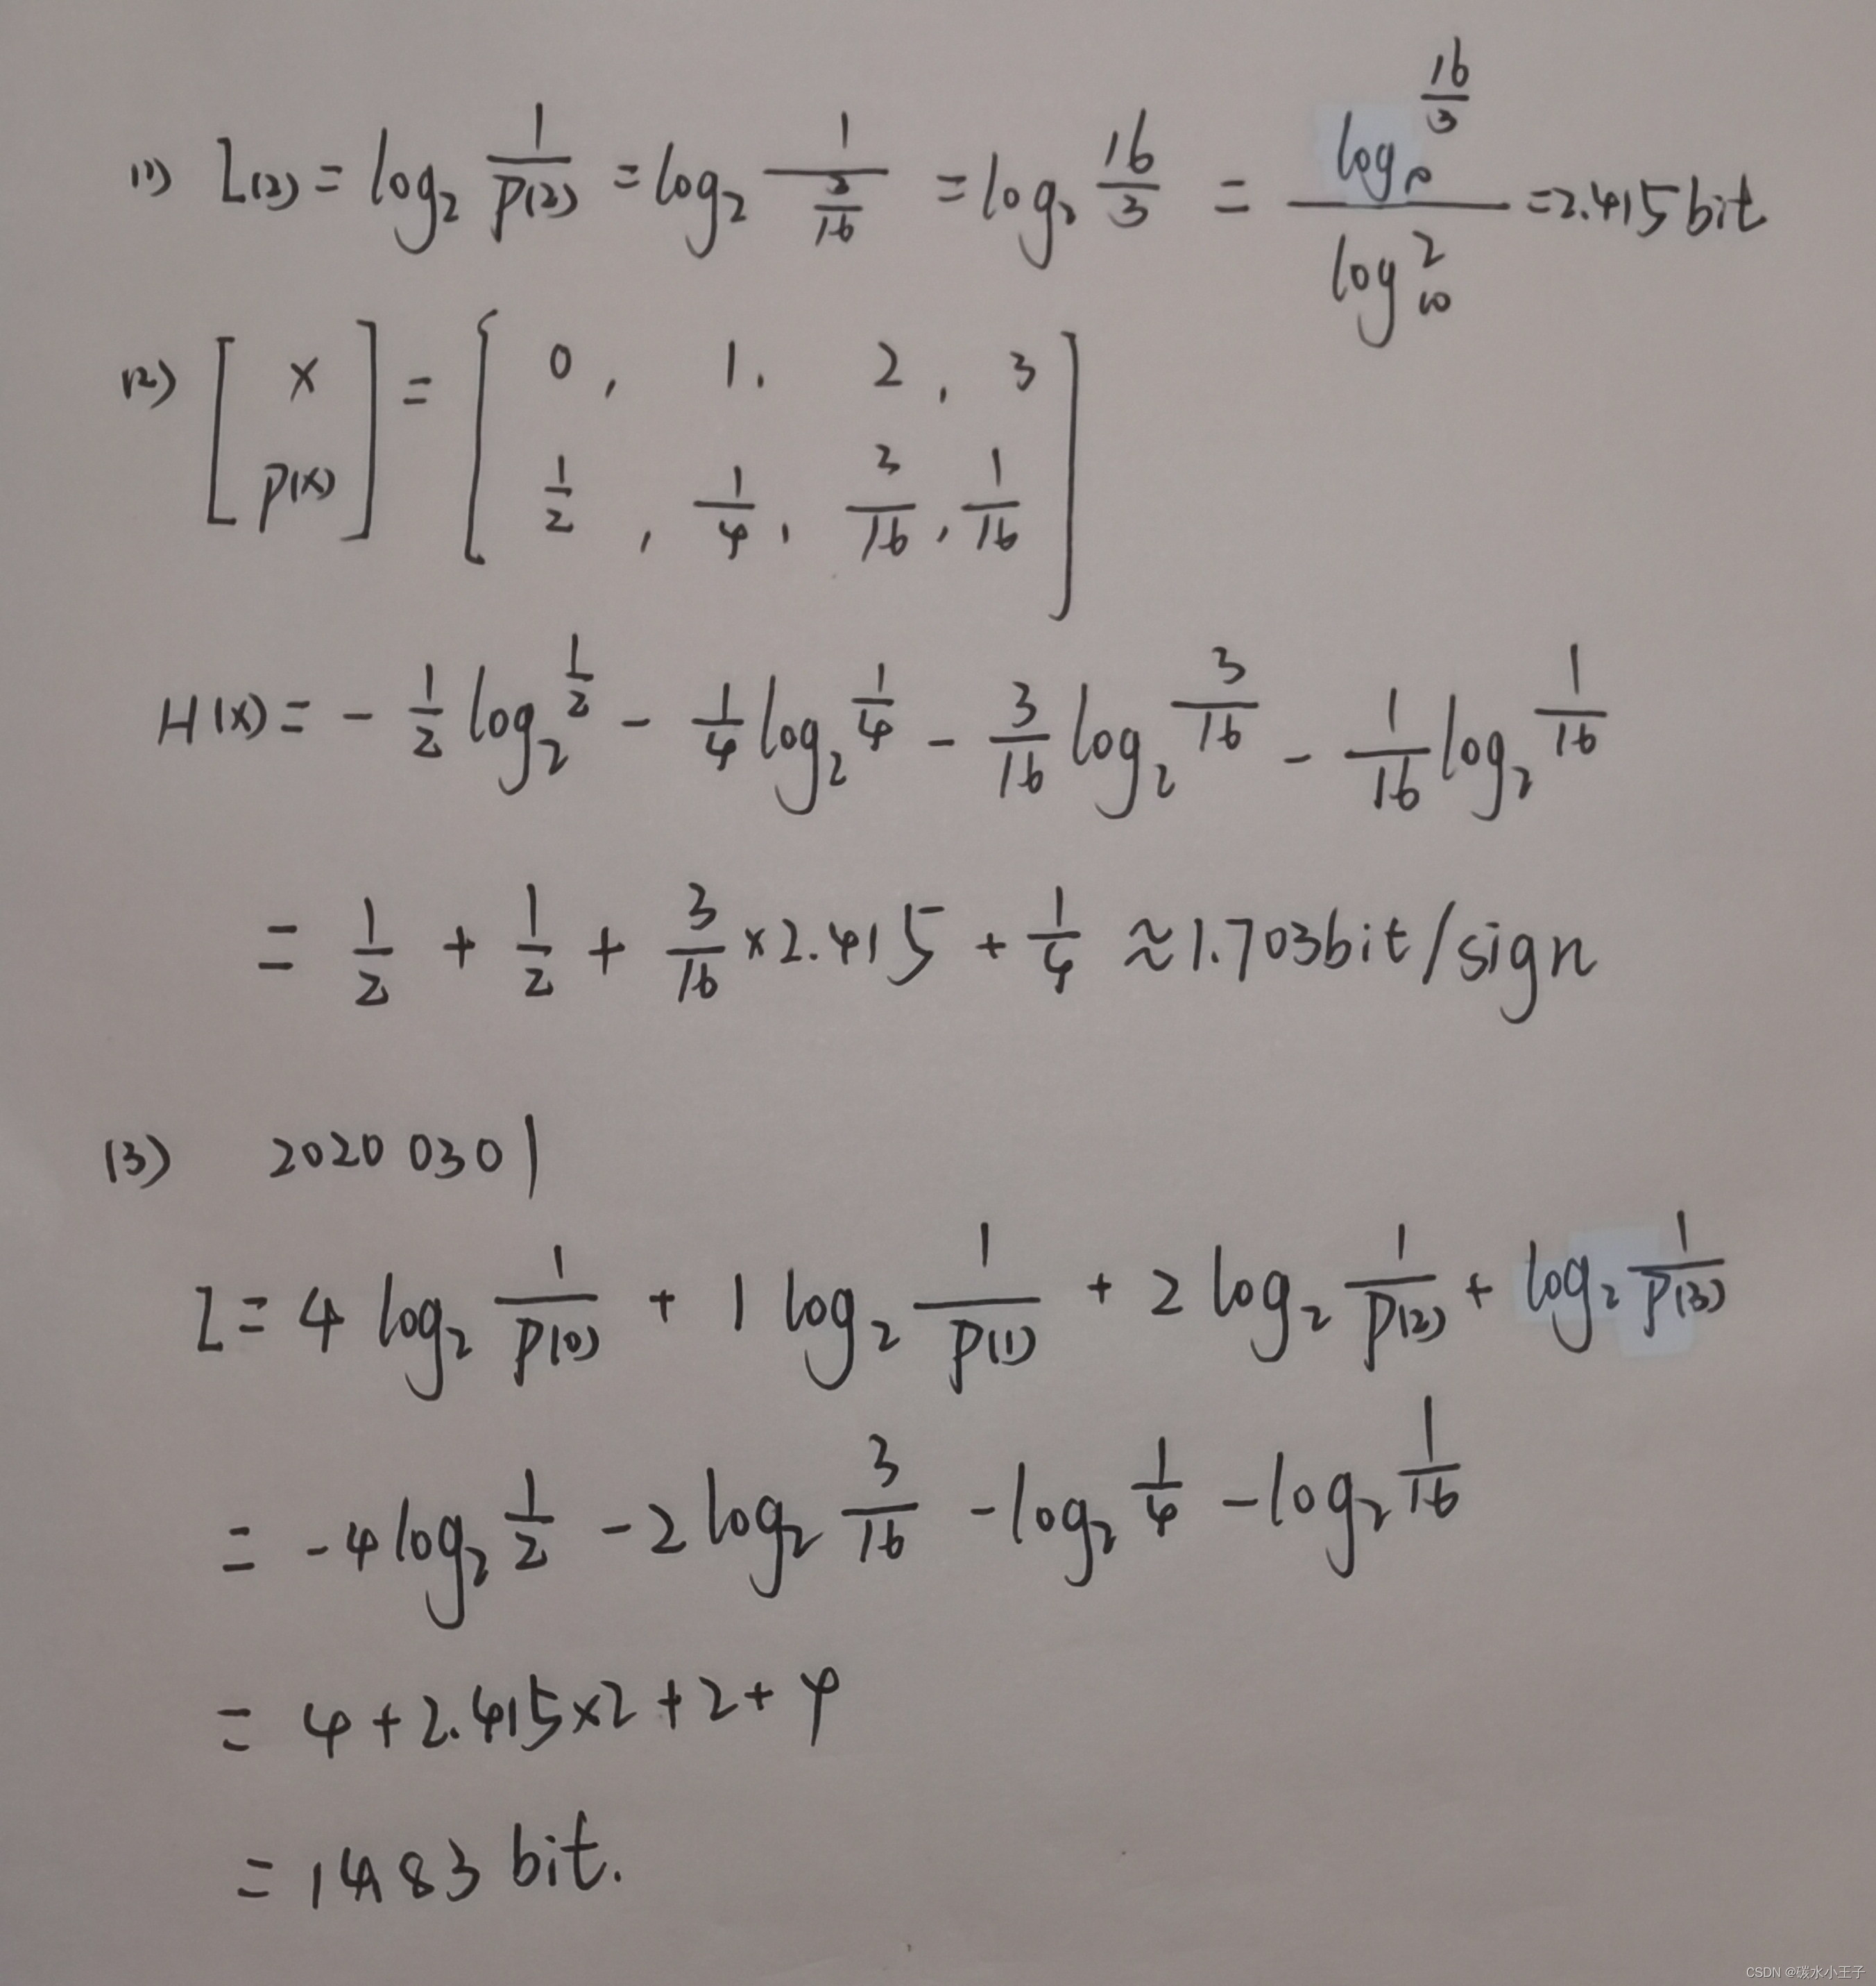 (1) I(2) = log₂ 1/P(2) = log₂ 1/(3/16) = log₂ 16/3 = log₁₀ 16/3 / log₁₀ 2 = 2.415 bit
(2) [ X P(X) ] = [ 0 , 1 , 2 , 3
1/2 , 1/4 , 3/16 , 1/16 ]
H(X) = - 1/2 log₂ 1/2 - 1/4 log₂ 1/4 - 3/16 log₂ 3/16 - 1/16 log₂ 1/16
= 1/2 + 1/2 + 3/16 × 2.415 + 1/4 ≈ 1.703 bit/sign
(3) 2020 0301
I = 4 log₂ 1/P(0) + 1 log₂ 1/P(1) + 2 log₂ 1/P(2) + log₂ 1/P(3)
= - 4 log₂ 1/2 - 2 log₂ 3/16 - log₂ 1/4 - log₂ 1/16
= 4 + 2.415 × 2 + 2 + 4
= 14.83 bit.
CSDN @碳水小王子